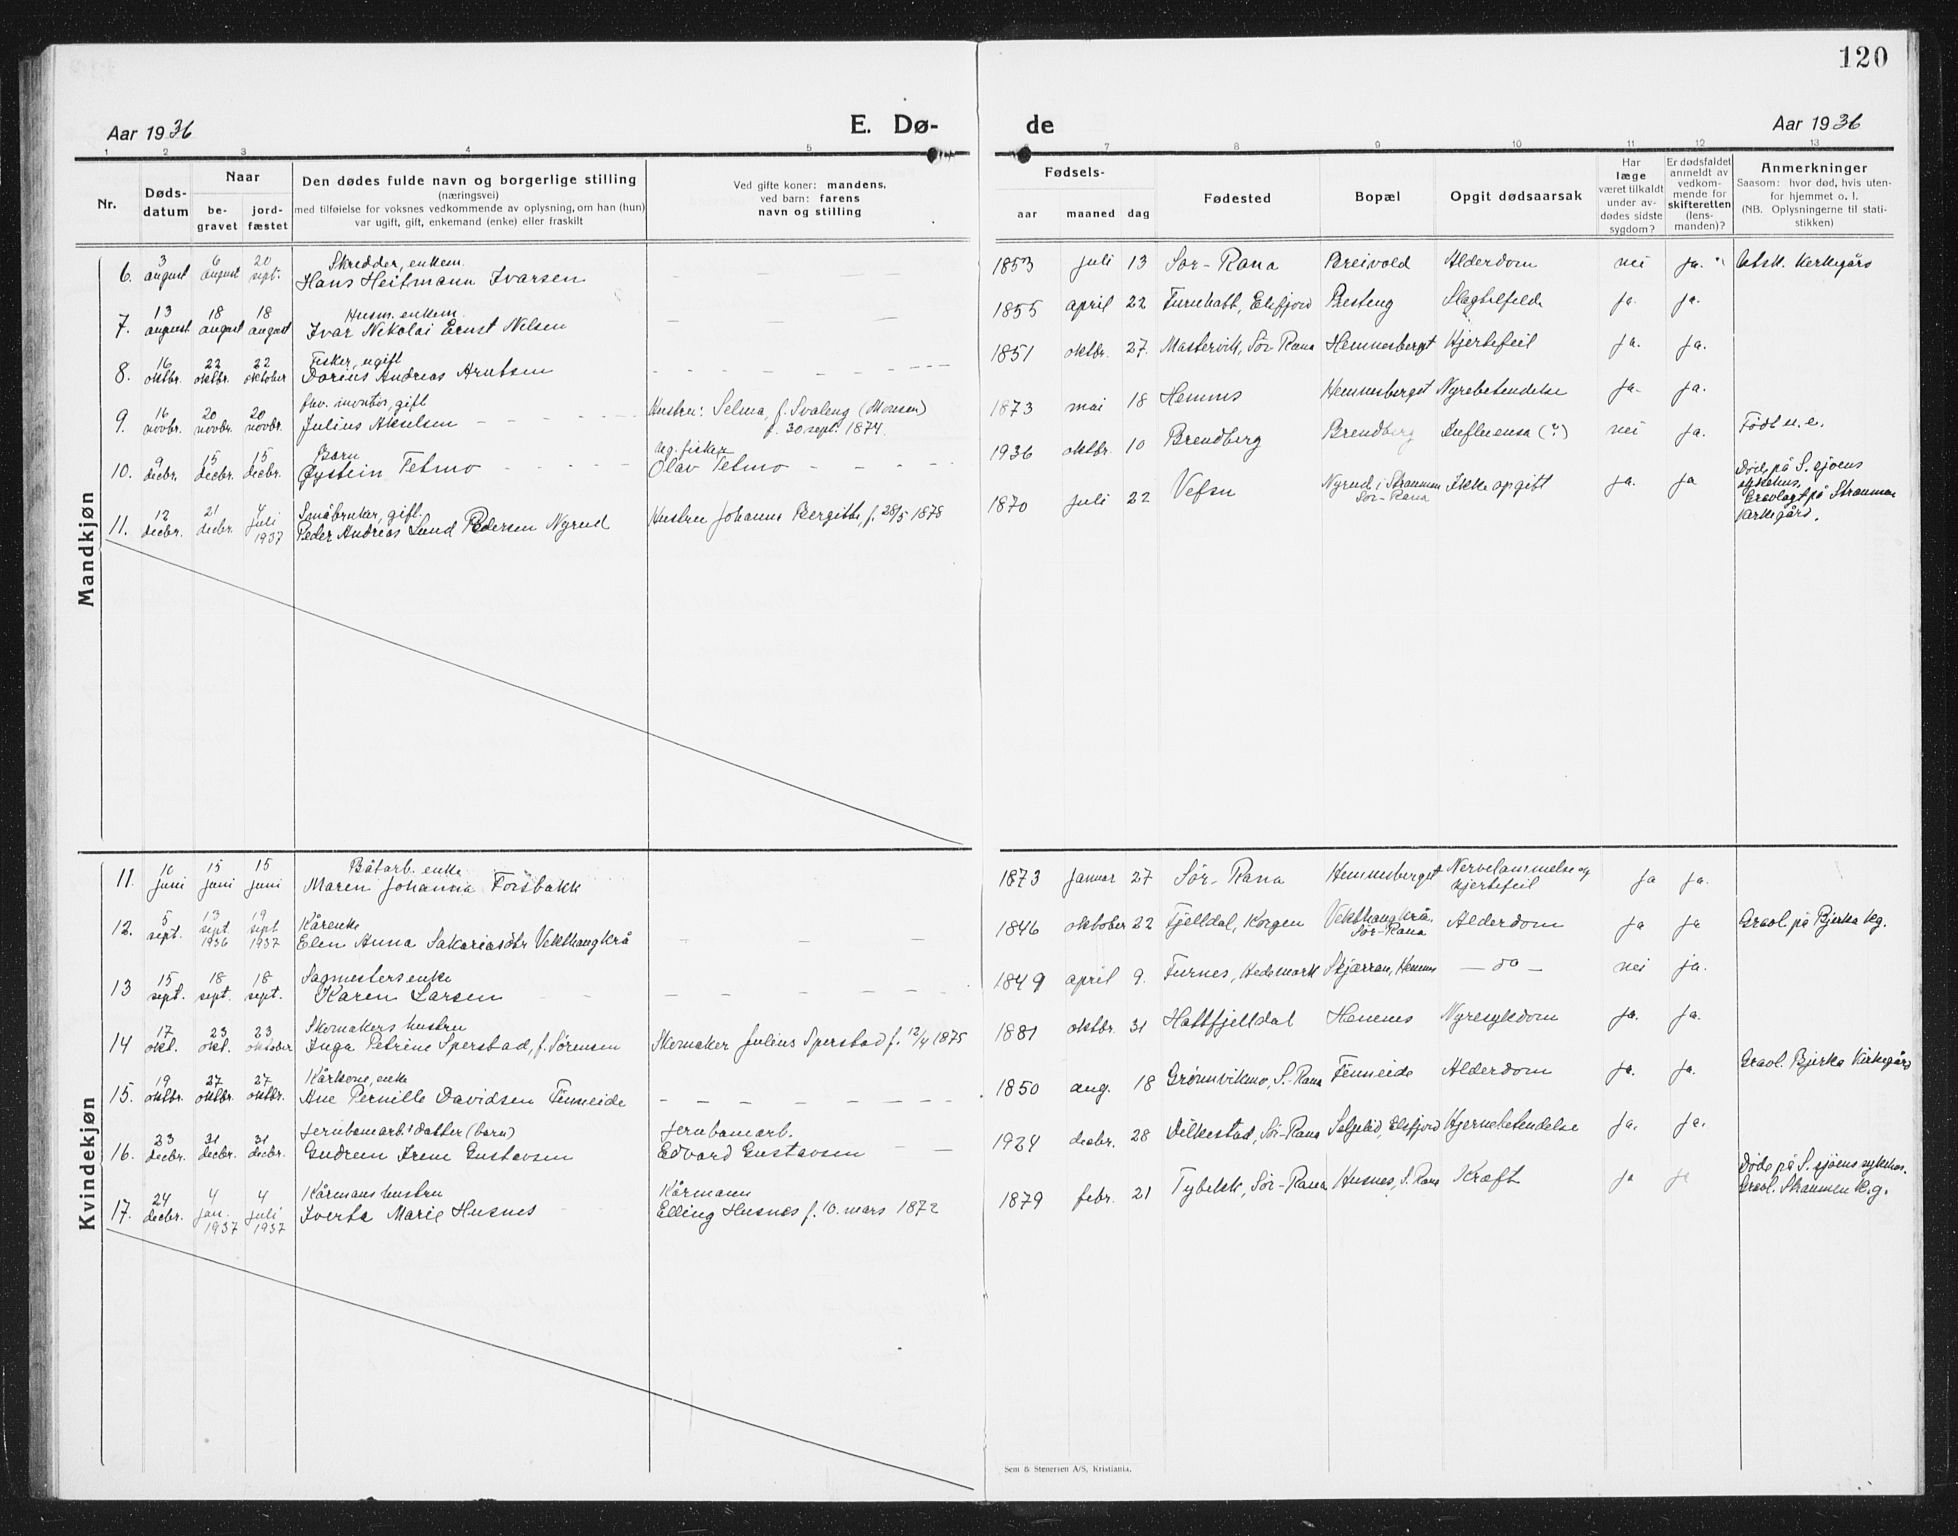 120
Aar 1936 E. Dø- de Aar 1936
1 2 3 4 5 6 7 8 9 10 11 12 13
Nr.
Døds-
datum
Naar
be-
gravet
jord-
fæstet
Den dødes fulde navn og borgerlige stilling
(næringsvei)
med tilføielse for voksnes vedkommende av oplysning, om han (hun)
var ugift, gift, enkemand (enke) eller fraskilt
Ved gifte koner: mandens,
ved barn: farens
navn og stilling
Fødsels-
aar maaned dag
Fødested
Bopæl
Opgit dødsaarsak
Har
læge
været tilkaldt
under av-
dødes sidste
sygdom?
Er dødsfaldet
anmeldt av
vedkom-
mende for
skifteretten
(lens-
manden)?
Anmerkninger
Saasom: hvor død, hvis uten-
for hjemmet o. l.
(NB. Oplysningerne til stati-
stikken)
Mandkjøn
Skredder, enkem.
6. 3 august 6 august 20 sept. Hans Heitmann Ivarsen 1853 juli 13 Sør-Rana Breivold Alderdom nei ja. kirkegård
Husm. enkem.
7. 13 august 18 august 18 august Ivar Nikolai Ernst Nilsen 1855 april 22 Elsfjord Slagtilfelde ja. ja.
Fisker, ugift
8. 16 oktbr. 22 oktbr. 22 oktober Dorius Andreas Arntsen 1851 oktbr. 27. Mastervik, Sør Rana Hemnesberget Hjertefeil ja. ja.
fhv. montør, gift
9. 16 novbr. 20 novbr. 20 novbr. Julius Akselsen Hustru: Selma, f. Svaleng (Monsen) 1873 mai 18 Hemnes Hemnesberget Nyrebetendelse ja. ja.
f. 30 sept. 1874.
Barn
10. 9 decbr. 15 decbr. 15 decbr. Øystein Tetmo Ug. fisker Olav Tetmo 1936 oktbr. 10 Brendberg Brendberg Influensa (?) nei ja. Født u. e.
Småbruker, gift.
11. 12 decbr. 21 decbr. 7 juli 1937 Peder Andreas Lund Pedersen Nyrud Hustru Johanna Bergitte, f. 28/5 1878 1870 juli 22 Vefsn Nyrud i Straumen Sør-Rana Ikke opgitt ja. ja Død på S. sjøens sykehus, Gravlagt på Straumen kirkegård.
Kvindekjøn
Båtarb. enke
11. 10 juni 15 juni 15 juni Maren Johanna Forsbakk 1873 januar 27 Sør-Rana Hemnesberget Nervelammelse og hjertefeil ja ja.
Kårenke
12. 5 sept. 13 sept. 1936 19 sept 1937 Elen Anna Sakariasdtr Vekthaugkrå 1846 oktober 22 Fjelldal, Korgen Vekthaugkrå, Sør-Rana Alderdom ja ja Gravl. på Bjerka kg.
Sagmesters enke
13 15 sept. 18 sept. 18 sept. Karen Larsen 1849 april 9. Furnes, Hedemark Skjærran, Hemnes - do - nei ja.
Skomakers hustru
14 17 okt. 23 okt. 23 oktober Inga Petrine Sperstad, f. Sørensen Skomaker Julius Sperstad f. 12/4 1875 1881 oktbr. 31 Hattfjelldal Hemnes Nyresykdom ja. ja.
Kårkone, enke
15. 19 oktbr. 27 oktbr. 27 oktbr. Ane Pernille Davidsen Finneide 1850 aug. 18 Grønnvikmo, S.-Rana Finneide Alderdom ja. ja. Gravl. Bjerka Kirkegård
Jernbanearb. datter (barn)
16. 23 decbr. 31 decbr. 31 decbr. Gudrun Irene Gustavsen Jernbanearb. Edvard Gustavsen 1924 decbr. 28 Dilkestad, Sør-Rana Elsfjord Hjernebetendelse ja. ja.
Kårmans hustru
17. 24 decbr. 4 jan. 1937 4 juli 1937 Iverta Marie Husnes Kårmann Elling Husnes f. 10. mars 1872 1879 febr. 21 Tybekk, Sør-Rana Husnes, S. Rana Kræft ja ja Død på S. sjøens sykehus. Gravl. Straumen k.g.
Sem & Stenersen A/S, Kristiania.